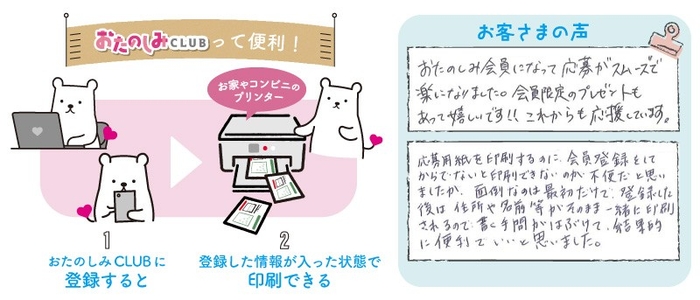 おたのしみCLUBって便利！
お家やコンビニの
プリンター
1
おたのしみCLUBに
登録すると
2
登録した情報が入った状態で
印刷できる
お客さまの声
おたのしみ会員になって応募がスムーズで
楽になりました。会員限定のプレゼントも
あって嬉しいです!! これからも応援しています。
応募用紙を印刷するのに、会員登録をして
からでないと印刷できないのが不便だと思い
ましたが、面倒なのは最初だけで、登録した
後は住所や名前等がそのまま一緒に印刷
されるので、書く手間がはぶけて、結果的
に便利でいいと思いました。